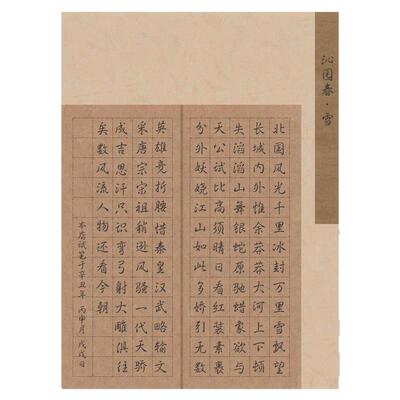 沁园春·雪
北国风光千里冰封万里雪飘望
长城内外惟余莽莽大河上下顿
失滔滔山舞银蛇原驰蜡象欲与
天公试比高须晴日看红装素裹
分外妖娆江山如此多娇引无数
英雄竞折腰惜秦皇汉武略输文
采唐宗宋祖稍逊风骚一代天骄
成吉思汗只识弯弓射大雕俱往
矣数风流人物还看今朝
本店试笔于辛丑年 丙申月 戊戌日